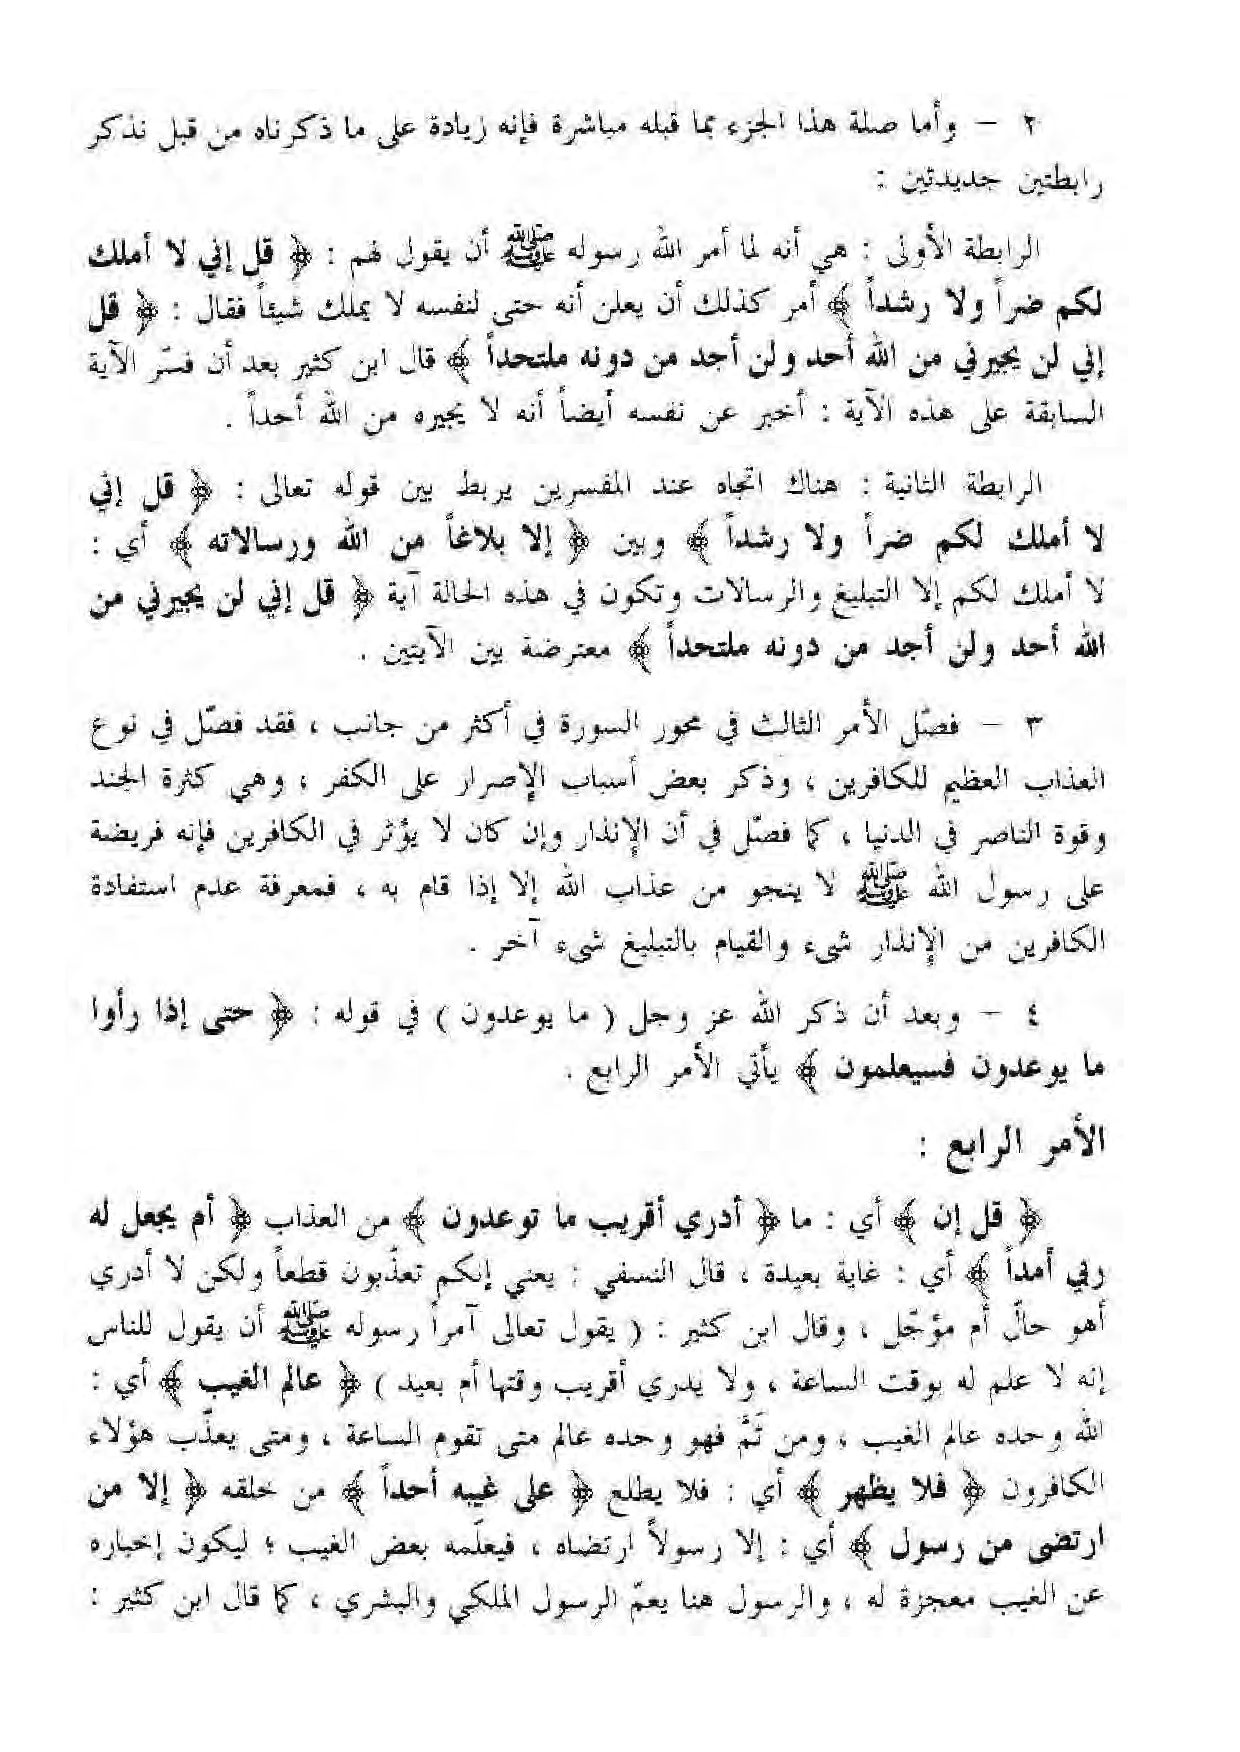 ٢ – وأما صلة هذا الجزء بما قبله مباشرة فإنه زيادة على ما ذكرناه من قبل نذكر
رابطتين جديدتين :
الرابطة الأولى : هي أنه لما أمر الله رسوله ﷺ أن يقول لهم : ﴿ قل إني لا أملك
لكم ضراً ولا رشداً ﴾ أمر كذلك أن يعلن أنه حتى لنفسه لا يملك شيئاً فقال : ﴿ قل
إني لن يجيرني من الله أحد ولن أجد من دونه ملتحداً ﴾ قال ابن كثير بعد أن فسّر الآية
السابقة على هذه الآية : أخبر عن نفسه أيضاً أنه لا يجيره من الله أحداً .
الرابطة الثانية : هناك اتجاه عند المفسرين يربط بين قوله تعالى : ﴿ قل إني
لا أملك لكم ضراً ولا رشداً ﴾ وبين ﴿ إلا بلاغاً من الله ورسالاته ﴾ أي :
لا أملك لكم إلا التبليغ والرسالات وتكون في هذه الحالة آية ﴿ قل إني لن يجيرني من
الله أحد ولن أجد من دونه ملتحداً ﴾ معترضة بين الآيتين .
٣ – فصّل الأمر الثالث في محور السورة في أكثر من جانب ، فقد فصّل في نوع
العذاب العظيم للكافرين ، وذكر بعض أسباب الإصرار على الكفر ، وهي كثرة الجند
وقوة الناصر في الدنيا ، كما فصّل في أن الإنذار وإن كان لا يؤثر في الكافرين فإنه فريضة
على رسول الله ﷺ لا ينجو من عذاب الله إلا إذا قام به ، فمعرفة عدم استفادة
الكافرين من الإنذار شىء والقيام بالتبليغ شىء آخر .
٤ – وبعد أن ذكر الله عز وجل ( ما يوعدون ) في قوله : ﴿ حتى إذا رأوا
ما يوعدون فسيعلمون ﴾ يأتي الأمر الرابع .
الأمر الرابع :
﴿ قل إن ﴾ أي : ما ﴿ أدري أقريب ما توعدون ﴾ من العذاب ﴿ أم يجعل له
ربي أمداً ﴾ أي : غاية بعيدة ، قال النسفي : يعني إنكم تعذّبون قطعاً ولكن لا أدري
أهو حالّ أم مؤجّل ، وقال ابن كثير : ( يقول تعالى آمراً رسوله ﷺ أن يقول للناس
إنه لا علم له بوقت الساعة ، ولا يدري أقريب وقتها أم بعيد ) ﴿ عالم الغيب ﴾ أي :
الله وحده عالم الغيب ، ومن ثَمَّ فهو وحده عالم متى تقوم الساعة ، ومتى يعذّب هؤلاء
الكافرون ﴿ فلا يظهر ﴾ أي : فلا يطلع ﴿ على غيبه أحداً ﴾ من خلقه ﴿ إلا من
ارتضى من رسول ﴾ أي : إلا رسولاً ارتضاه ، فيعلّمه بعض الغيب ؛ ليكون إخباره
عن الغيب معجزة له ، والرسول هنا يعمّ الرسول الملكي والبشري ، كما قال ابن كثير :